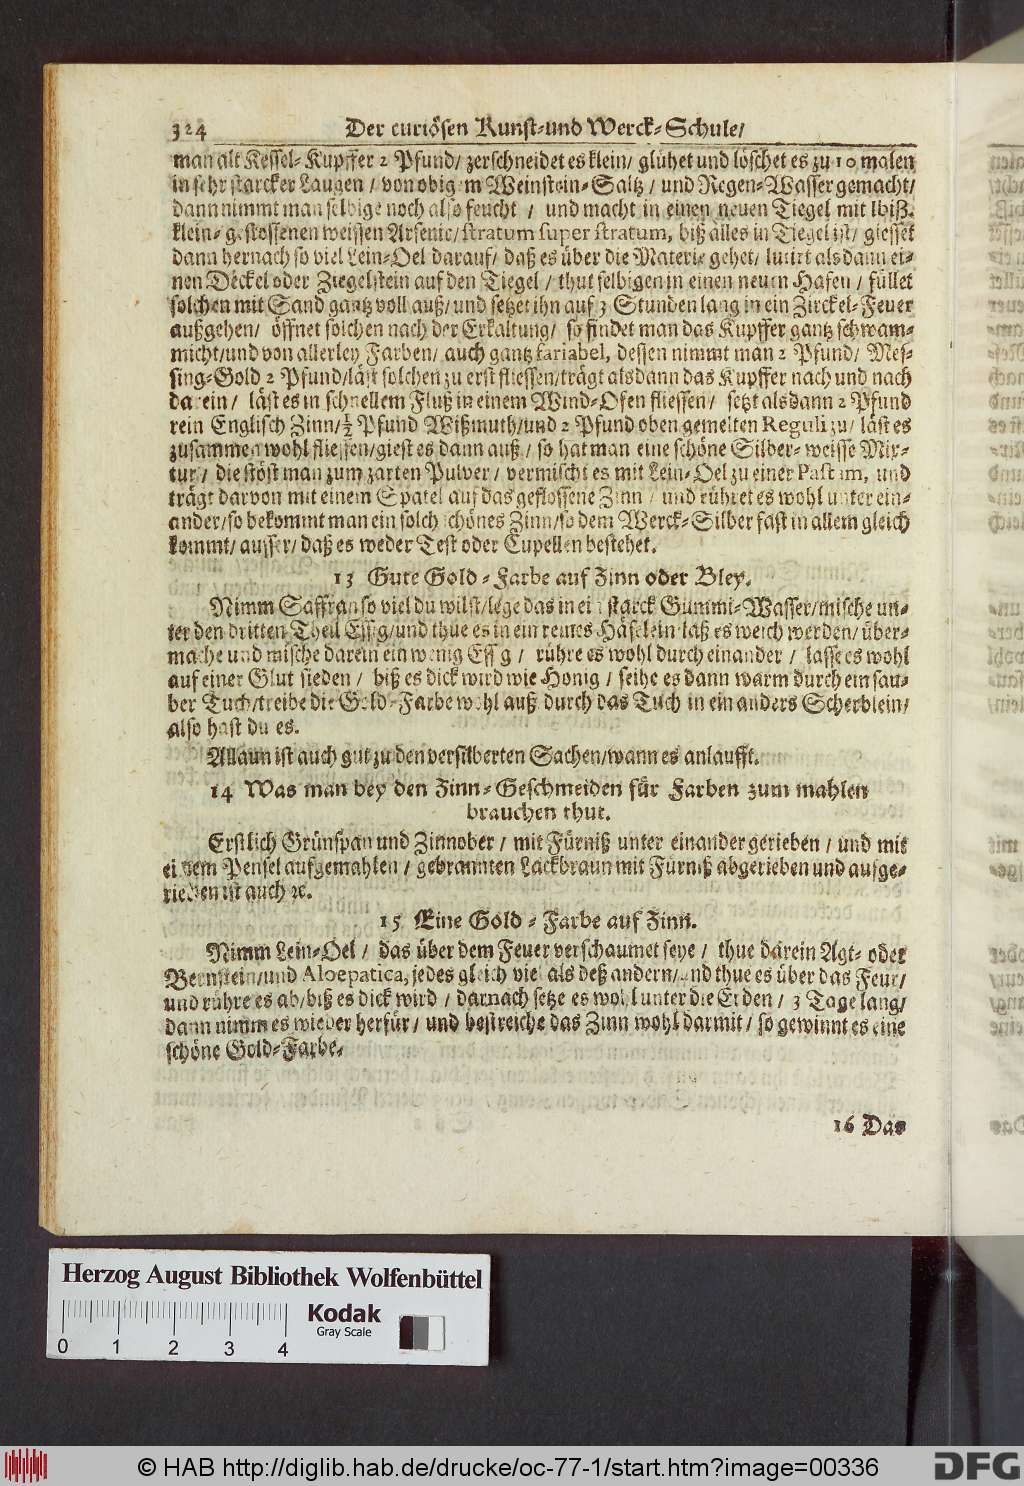 324 Der curiösen Kunst-und Werck-Schule/
man alt Kessel-Kupffer 2 Pfund/ zerschneidet es klein/ glühet und löschet es zu 10 malen
in sehr starcker Laugen / von obigem Weinstein-Saltz / und Regen-Wasser gemacht/
dann nimmt man selbige noch also feucht / und macht in einen neuen Tiegel mit lbiß.
klein-gestossenen weissen Arsenic/ stratum super stratum, biß alles in Tiegel ist/ giesset
dann hernach so viel Lein-Oel darauf/ daß es über die Materie gehet/ lutirt alsdann ei-
nen Deckel oder Ziegelstein auf den Tiegel / thut selbigen in einen neuen Hafen / füllet
solchen mit Sand gantz voll auß/ und setzet ihn auf 3 Stunden lang in ein Zirckel-Feuer
außgehen/ öffnet solchen nach der Erkaltung/ so findet man das Kupffer gantz schwam-
micht/ und von allerley Farben/ auch gantz fariabel, dessen nimmt man 2 Pfund/ Mes-
sing-Gold 2 Pfund/ läst solchen zu erst fliessen/ trägt alsdann das Kupffer nach und nach
darein/ läst es in schnellem Fluß in einem Wind-Ofen fliessen/ setzt alsdann 2 Pfund
rein Englisch Zinn/ ½ Pfund Wißmuth/ und 2 Pfund oben gemelten Reguli zu/ läst es
zusammen wohl fliessen/ giest es dann auß / so hat man eine schöne Silber-weisse Mix-
tur / die stöst man zum zarten Pulver / vermischt es mit Lein-Oel zu einer Pastam, und
trägt darvon mit einem Spatel auf das geflossene Zinn / und rühret es wohl unter ein-
ander/ so bekommt man ein solch schönes Zinn/ so dem Werck-Silber fast in allem gleich
kommt/ ausser/ daß es weder Test oder Cupellen bestehet.
13 Gute Gold-Farbe auf Zinn oder Bley.
Nimm Saffran so viel du wilst/ lege das in ein starck Gummi-Wasser/ mische un-
ter den dritten Theil Essig/ und thue es in ein reines Häfelein laß es weich werden/ über-
mache und mische darein ein wenig Essig / rühre es wohl durch einander / lasse es wohl
auf einer Glut sieden / biß es dick wird wie Honig / seihe es dann warm durch ein sau-
ber Tuch/ treibe die Gold-Farbe wohl auß durch das Tuch in ein anders Scherblein/
also hast du es.
Allaun ist auch gut zu den versilberten Sachen/ wann es anlaufft.
14 Was man bey den Zinn-Geschmeiden für Farben zum mahlen
brauchen thut.
Erstlich Grünspan und Zinnober / mit Fürniß unter einander gerieben / und mit
einem Pensel aufgemahlen / gebrannten Lackbraun mit Fürniß abgerieben und aufge-
rieben ist auch ꝛc.
15 Eine Gold-Farbe auf Zinn.
Nimm Lein-Oel / das über dem Feuer verschaumet seye / thue darein Agt- oder
Bernstein/ und Aloepatica, jedes gleich viel als deß andern/ und thue es über das Feur/
und rühre es ab/ biß es dick wird / darnach setze es wohl unter die Erden / 3 Tage lang/
dann nimm es wieder herfür / und bestreiche das Zinn wohl darmit / so gewinnt es eine
schöne Gold-Farbe.
16 Das
Herzog August Bibliothek Wolfenbüttel
Kodak
Gray Scale
0 1 2 3 4
© HAB http://diglib.hab.de/drucke/oc-77-1/start.htm?image=00336
DFG